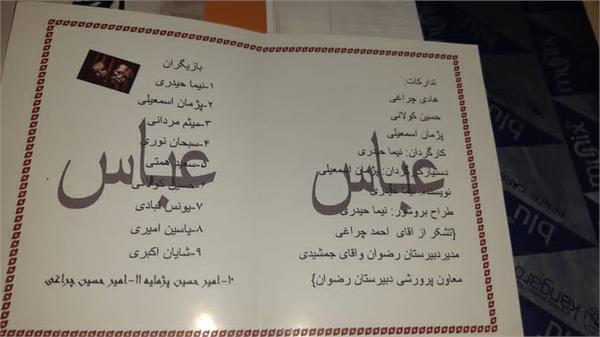 تدارکات:
هادی چراغی
حسین کولانی
پژمان اسمعیلی
کارگردان: نیما حیدری
دستیارکارگردان: پژمان اسمعیلی
نویسنده: نیما حیدری
طراح بروشور: نیما حیدری
{تشکر از اقای احمد چراغی
مدیردبیرستان رضوان واقای جمشیدی
معاون پرورشی دبیرستان رضوان}
عباس
بازیگران
۱-نیما حیدری
۲-پژمان اسمعیلی
۳-میثم مردانی
۴-سبحان نوری
۵-سعید همتی
۶-حسین کولانی
۷-یونس قبادی
۸-یاسین امیری
۹-شایان اکبری
۱۰-امیر حسین پژمایه ۱۱-امیر حسین چراغی
عباس
munix
blu
PENCIL CARBON
munix
blu
kangaro